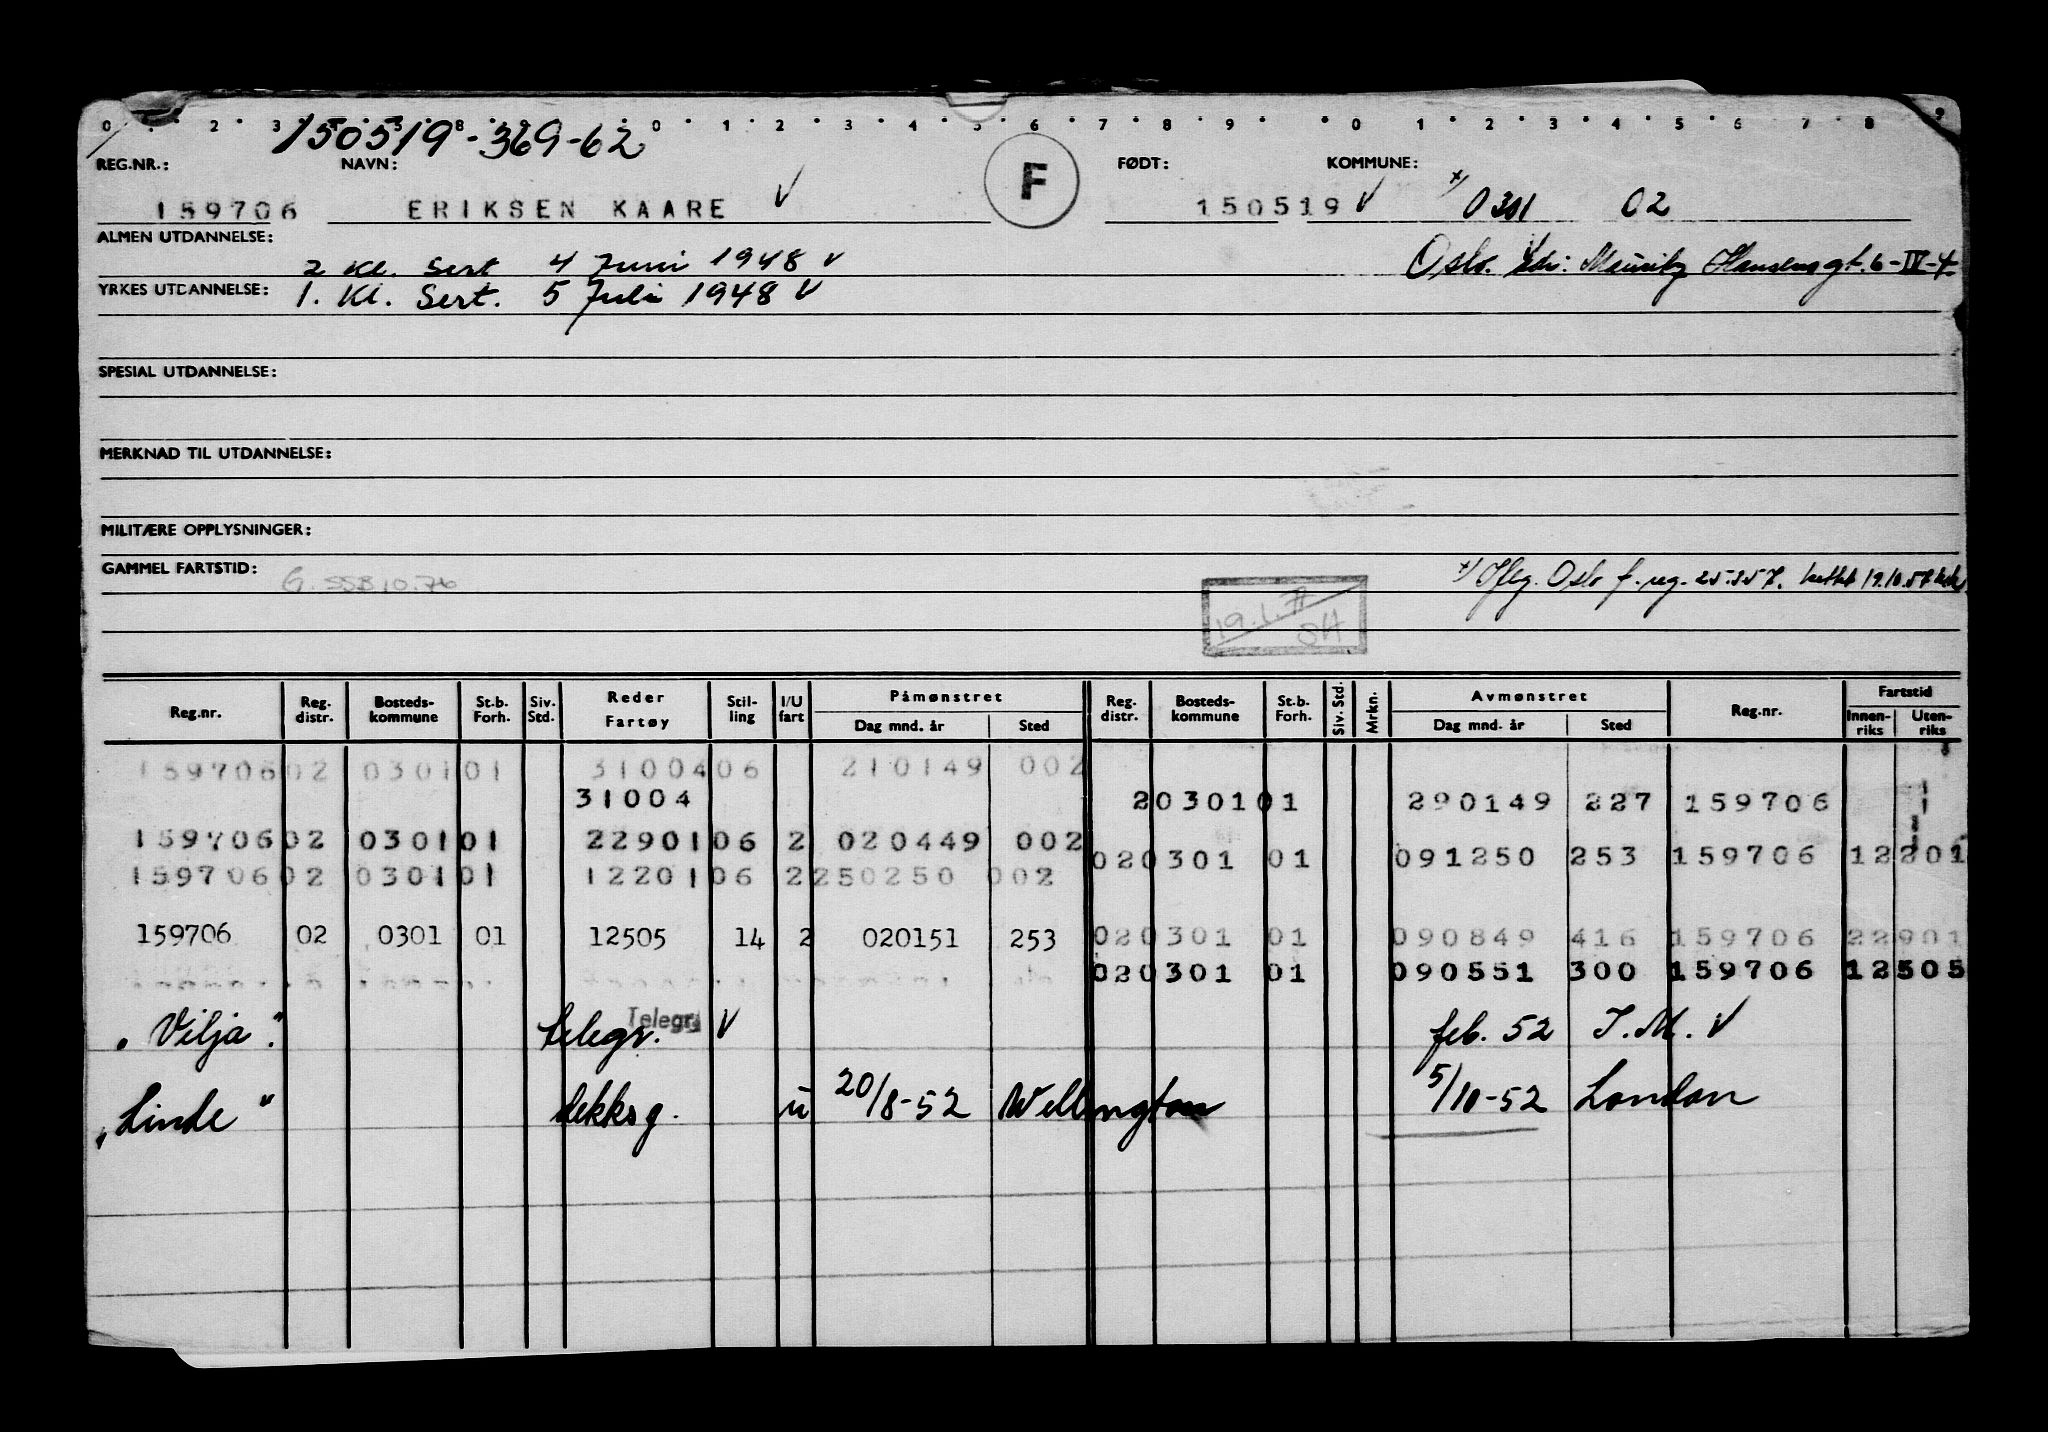 0 1 2 3 5 8 0 1 2 3 4 5 6 7 8 9 0 1 2 3 4 5 6 7 8 9
150519-369-62
REG.NR.: NAVN: F FØDT: KOMMUNE:
159706 ERIKSEN KAARE V 150519 V x/ 0301 02
ALMEN UTDANNELSE: 2 Kl. Sert 4 Juni 1948 V Oslo. Adr: Mauritz Hansensgt. 6-IV-4
YRKES UTDANNELSE: 1. Kl. Sert. 5 Juli 1948 V
SPESIAL UTDANNELSE:
MERKNAD TIL UTDANNELSE:
MILITÆRE OPPLYSNINGER:
GAMMEL FARTSTID: G. SSB 10.76 x/ Iflg. Oslo f. reg. 25.3.57. 19.10.57
19.1.77
SH
Reg.nr. Reg. distr. Bosteds- kommune St.b. Forh. Siv. Std. Reder Fartøy Stil- ling I/U fart Påmønstret Dag mnd. år Sted Reg. distr. Bosteds- kommune St.b. Forh. Siv. Std. Mrkn. Avmønstret Dag mnd. år Sted Reg.nr. Fartstid Innen- riks Uten- riks
159706 02 0301 01 31004 06 210149 002
31004 2 0301 01 290149 227 159706
159706 02 0301 01 22901 06 2 020449 002
02 0301 01 091250 253 159706 12201
159706 02 0301 01 12201 06 2 250250 002
159706 02 0301 01 12505 14 2 020151 253 02 0301 01 090849 416 159706 22901
02 0301 01 090551 300 159706 12505
"Vilja". telegr. Telegr. V feb. 52 I.M. V
"Linde" dekksg. u 20/8-52 Wellington 5/10-52 London